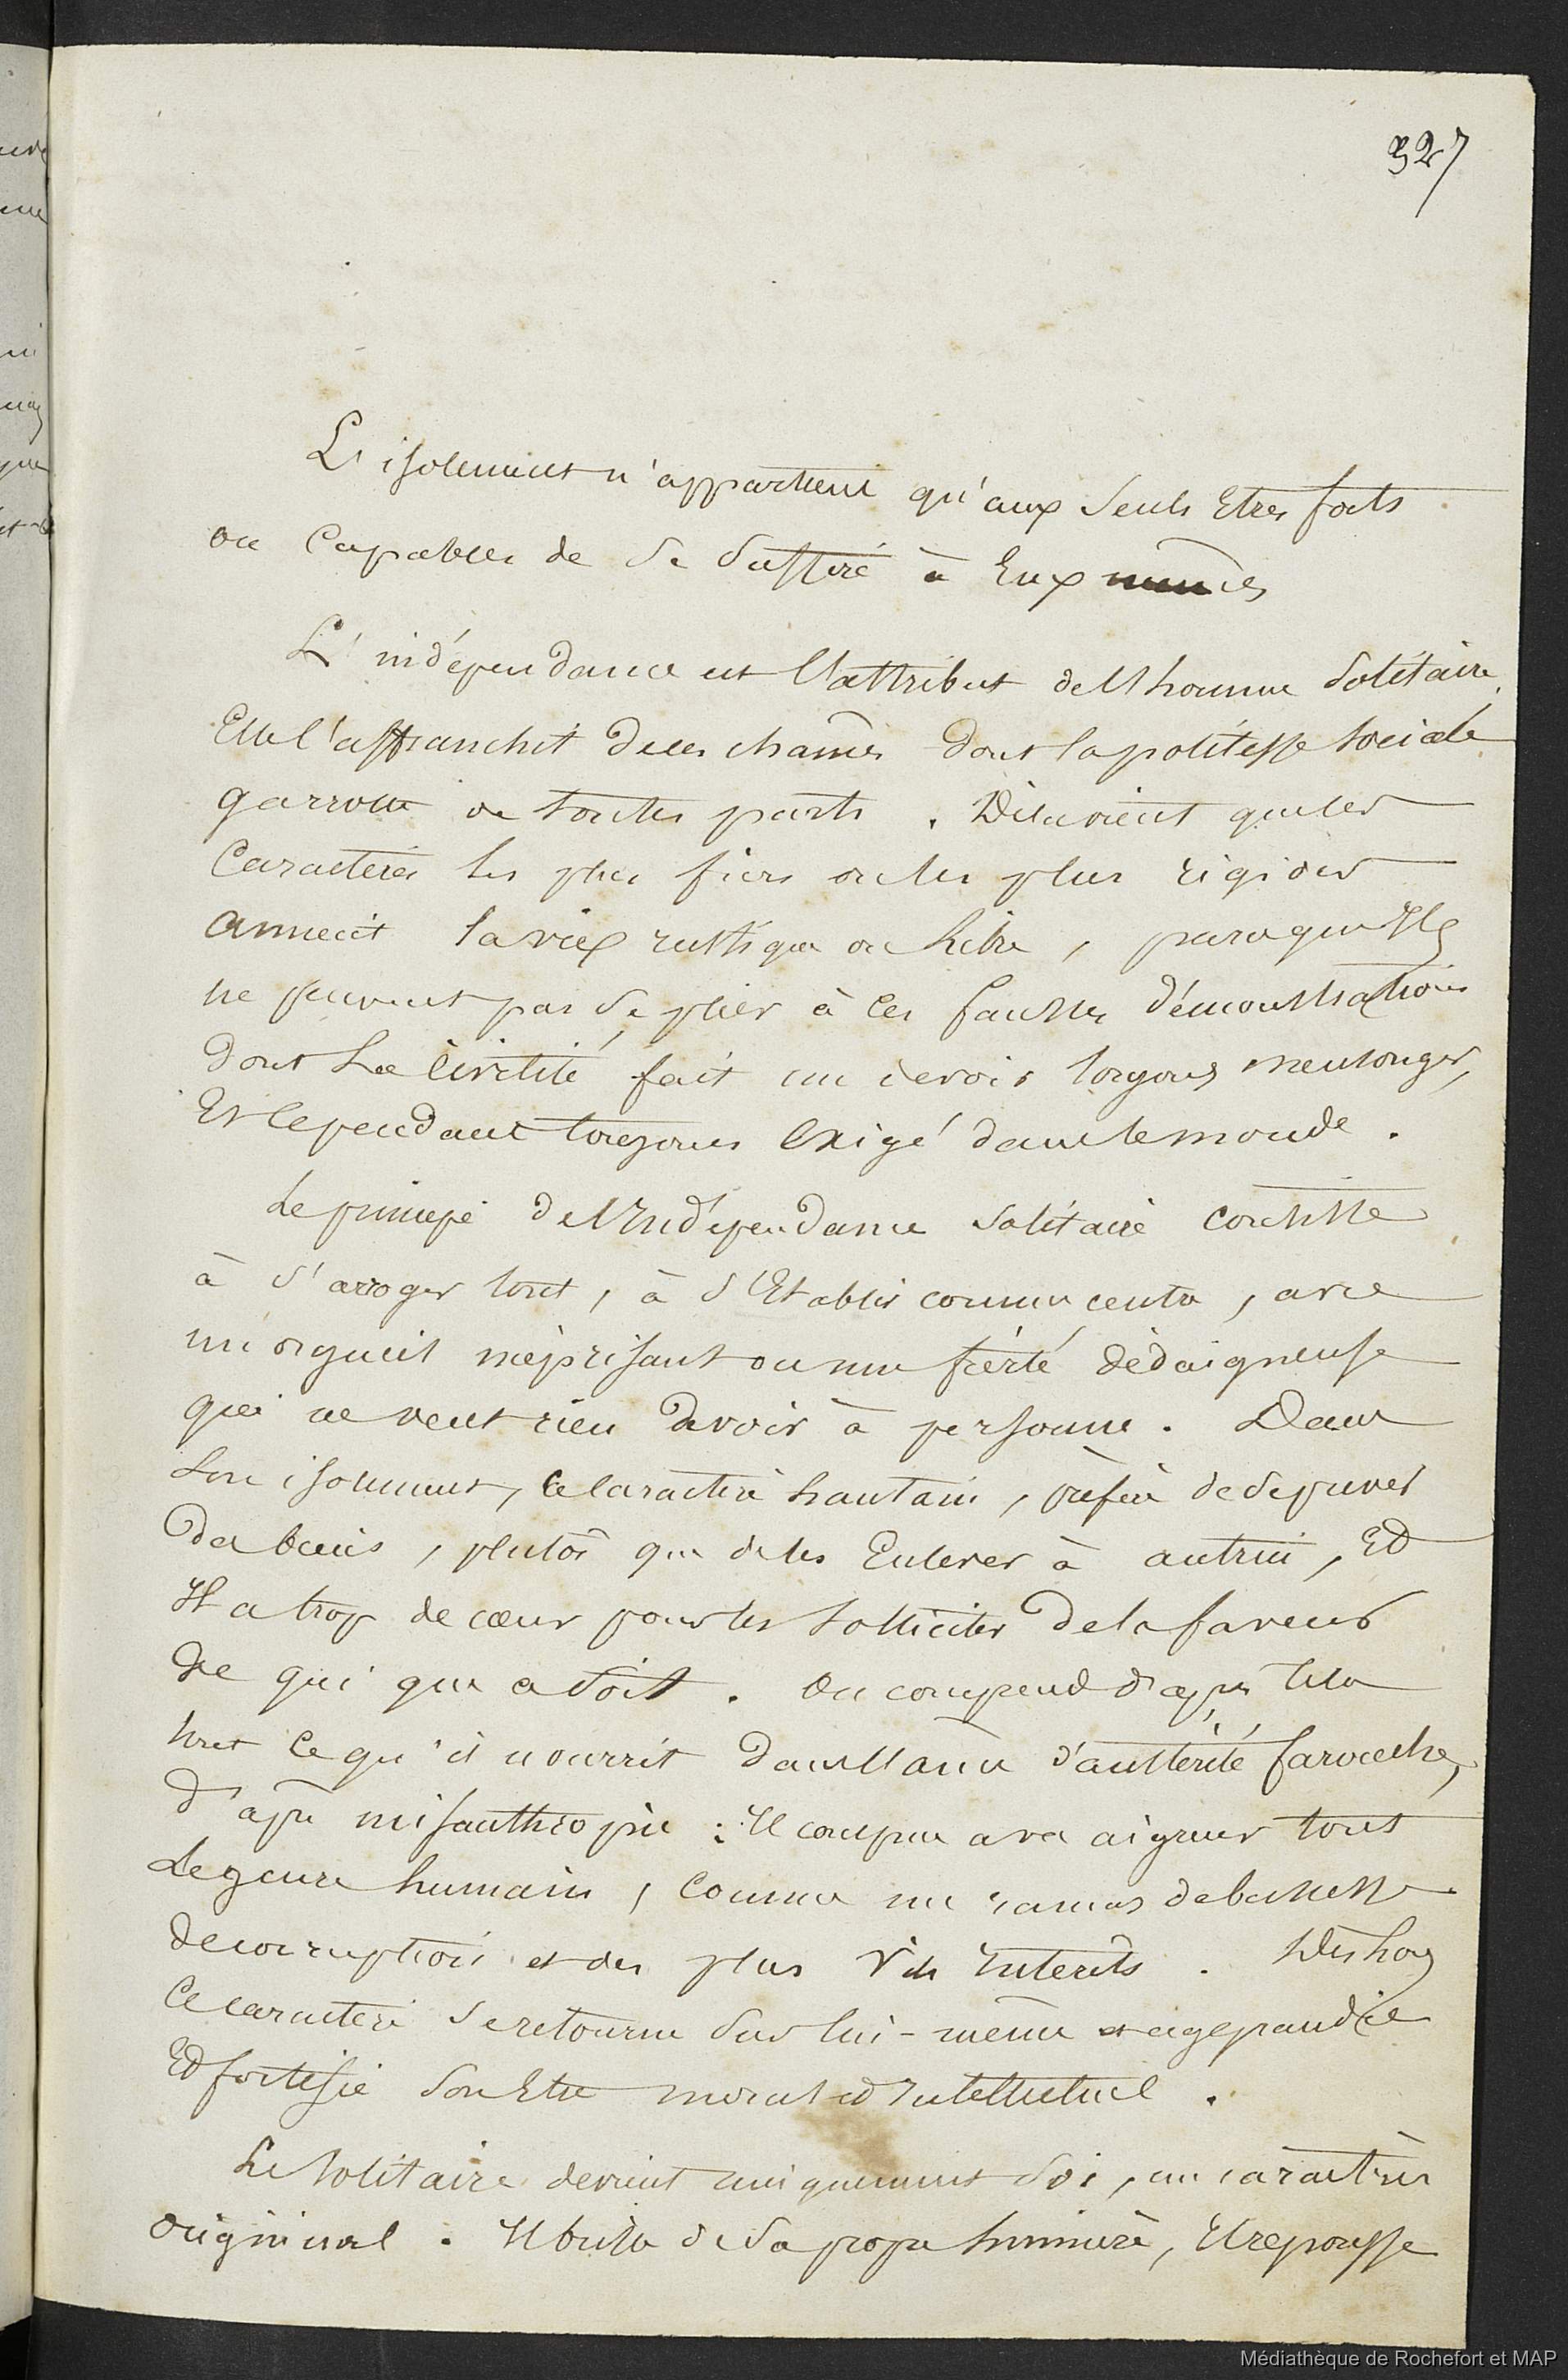 327
L'isolement n'appartient qu'aux seuls Etres forts
ou Capables de se suffire à Eux mêmes
L'indépendance est l'attribut de l'homme solitaire.
Elle l'affranchit de ces chaines dont la politesse sociale
garrotte de toutes parts. Dela vient que les
Caracteres les plus fiers ou les plus rigides
aiment la vie rustique ou libre, parceque Ils
ne peuvent pas se plier à ces fausses démonstrations
dont la Civilité fait un devoir toujours mensonger,
Et Cependant toujours Exigé dans le monde.
Le principe de l'Indépendance solitaire consiste
à s'arroger tout, à s'Etablir comme centre, avec
un orgueil méprisant ou une fierté dédaigneuse
qui ne veut rien devoir à personne. Dans
son isolement, ce Caractère hautain, préfère de se priver
de biens, plutôt que de les Enlever à autrui, Et
Il a trop de cœur pour les solliciter de la faveur
de qui que ce soit. On comprend d'après cela
tout ce qu'il nourrit dans l'ame d'austérité farouche,
d'apre misanthropie : Il conspue avec aigreur tout
le genre humain, comme un ramas de bassesse
de corruption et des plus vils Interêts. Dès lors
Ce caractere se retourne sur lui-même et agrandie
Et fortifie son Etre moral et Intellectuel.
Le solitaire devient uniquement soi, un caractère
original. Il brille de sa propre lumière, Et repousse
Médiathèque de Rochefort et MAP